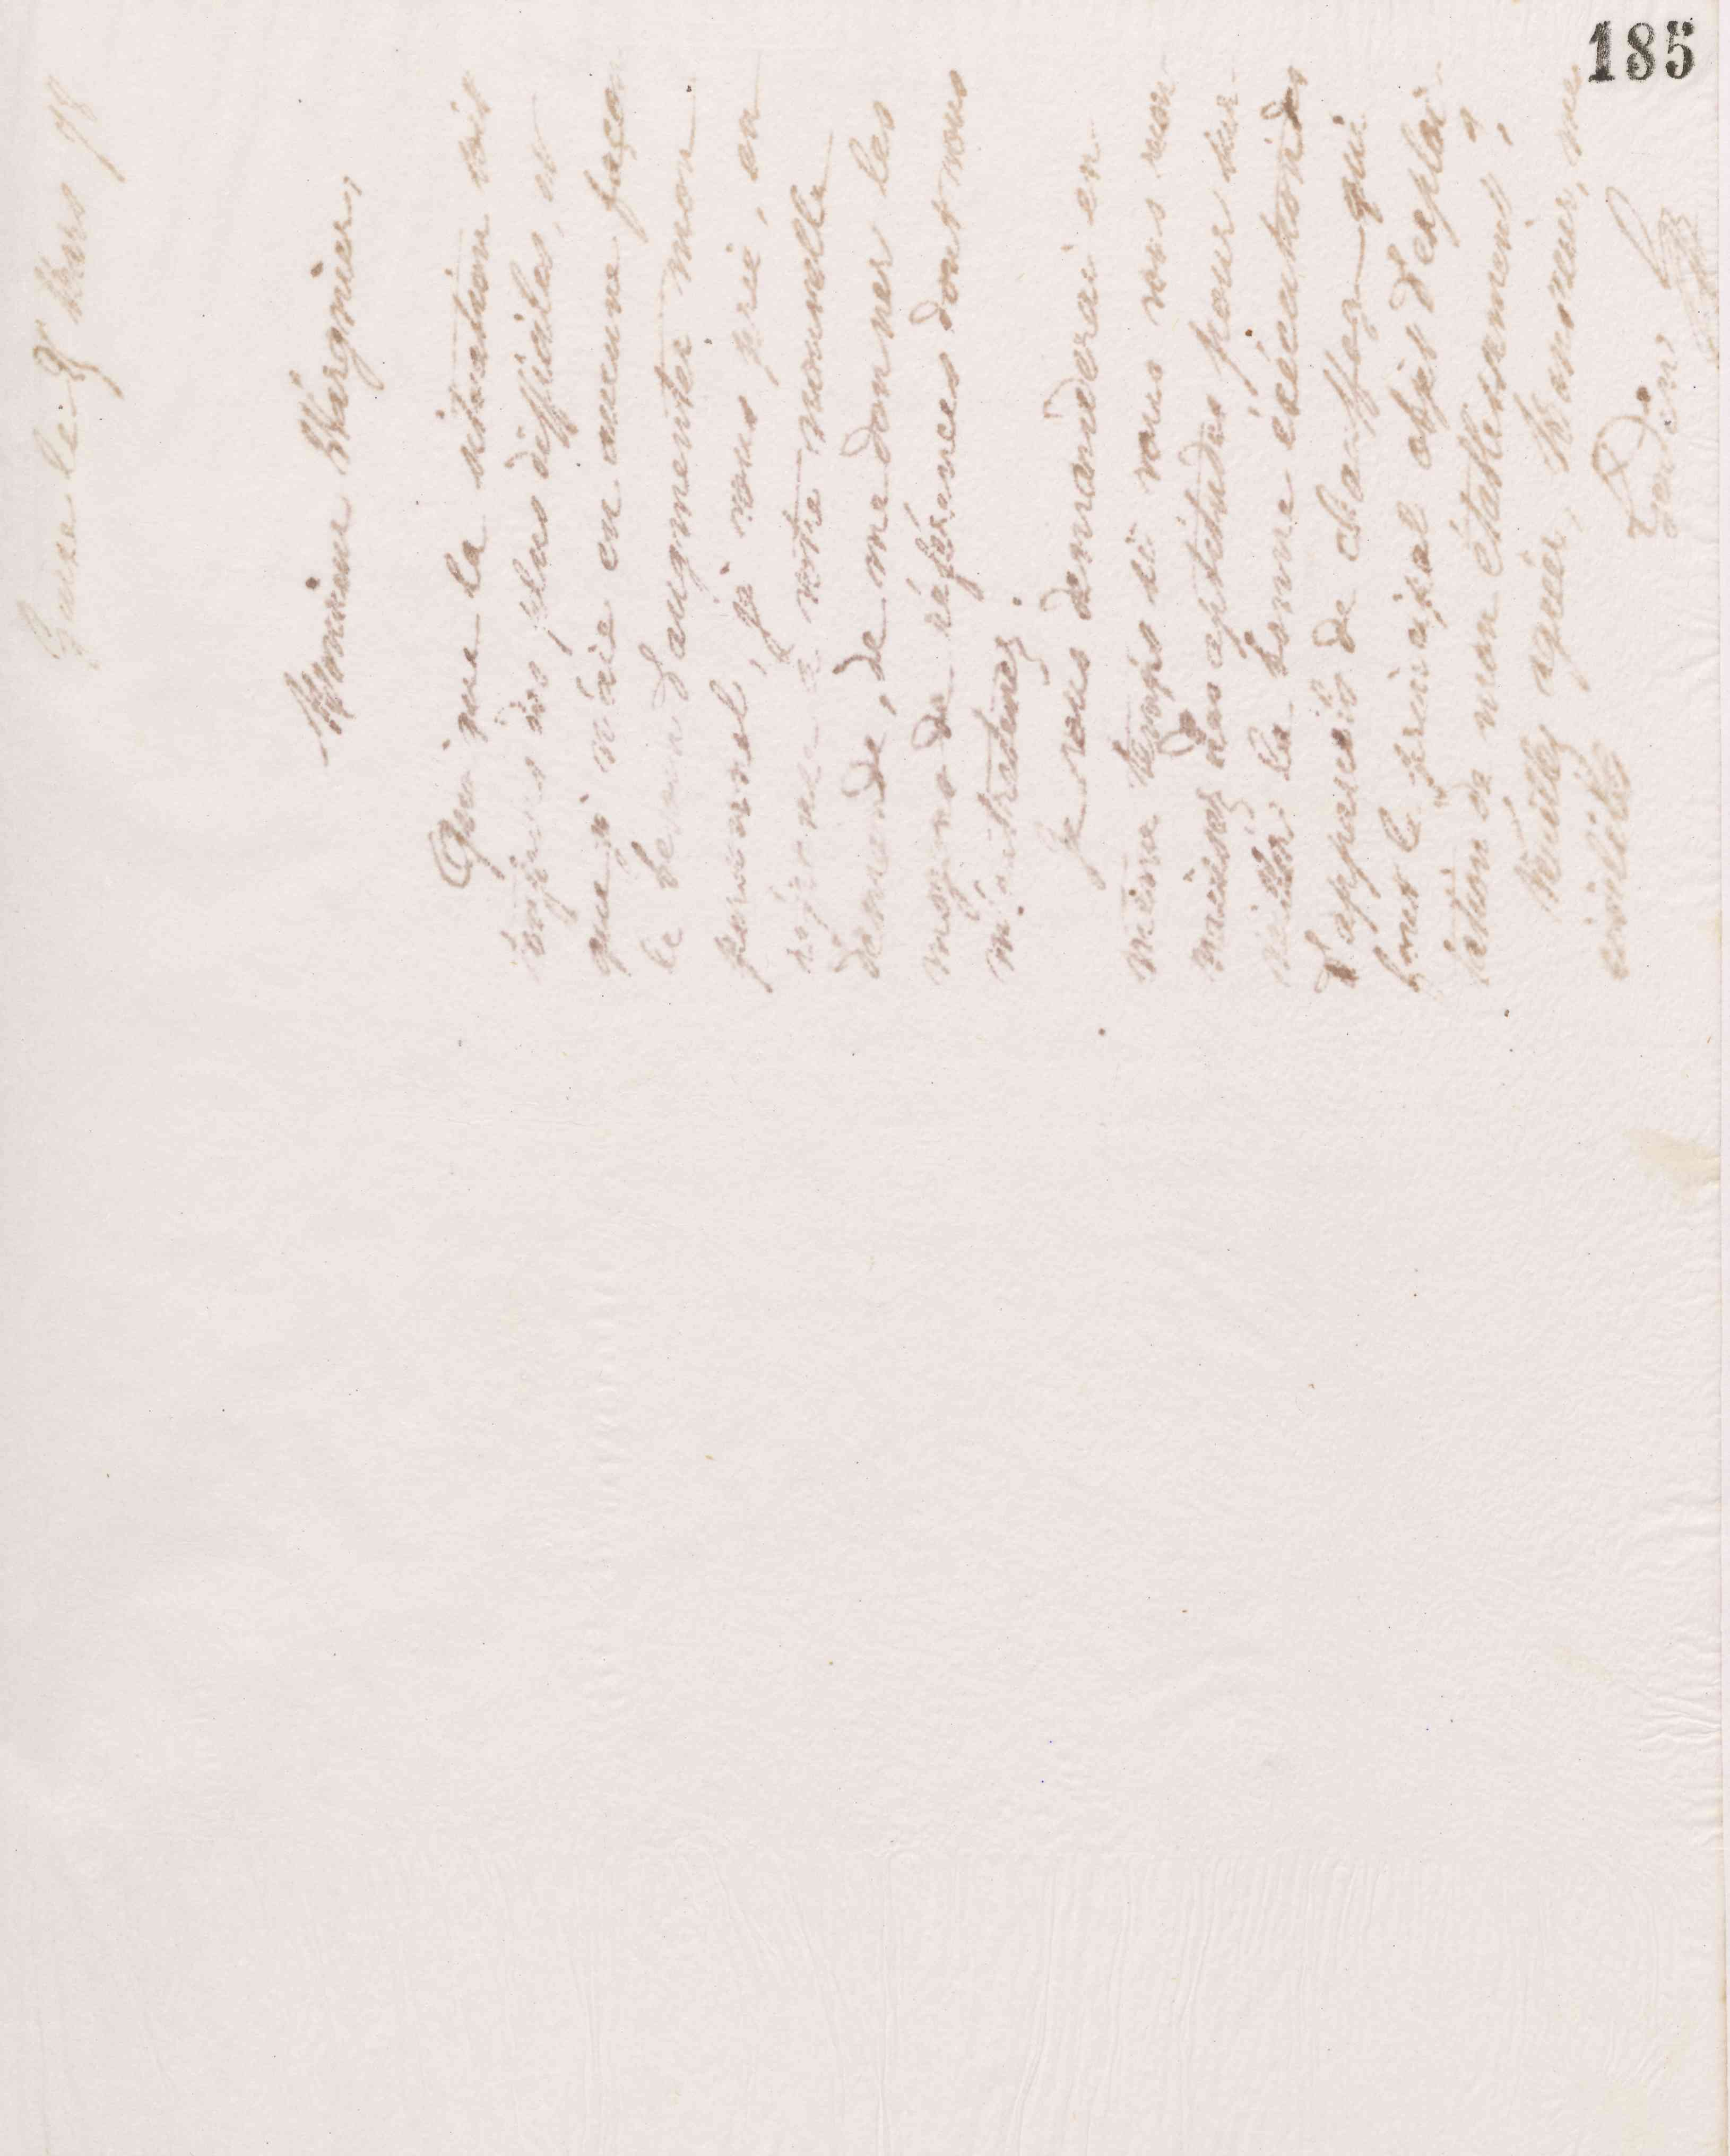 185
Guise le 8 Mars 78
Monsieur Wargnier,
Quoique la situation soit
toujours des plus difficiles, et
que je n'aie en aucune façon
le besoin d'augmenter mon
personnel, je vous prie, en
réponse à votre nouvelle
demande, de me donner les
moyens de références dont vous
m'entretenez.
Je vous demanderai en
même temps si vous vous
des aptitudes pour
la bonne exécution des
d'appareils de chauffage qui
font le principal objet d'exploi-
tation de mon établissement,
Veuillez agréer, Monsieur, mes
civilités
Godin